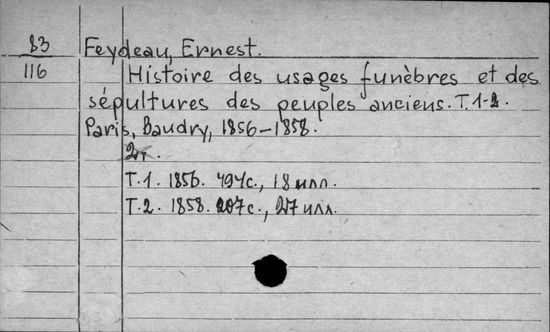 83 Feydeau, Ernest.
116 Histoire des usages funèbres et des
sépultures des peuples anciens. T. 1-2.
Paris, Baudry, 1856-1858.
2т.
Т.1. 1856. 494с., 18 илл.
Т.2. 1858. 207с., 27 илл.